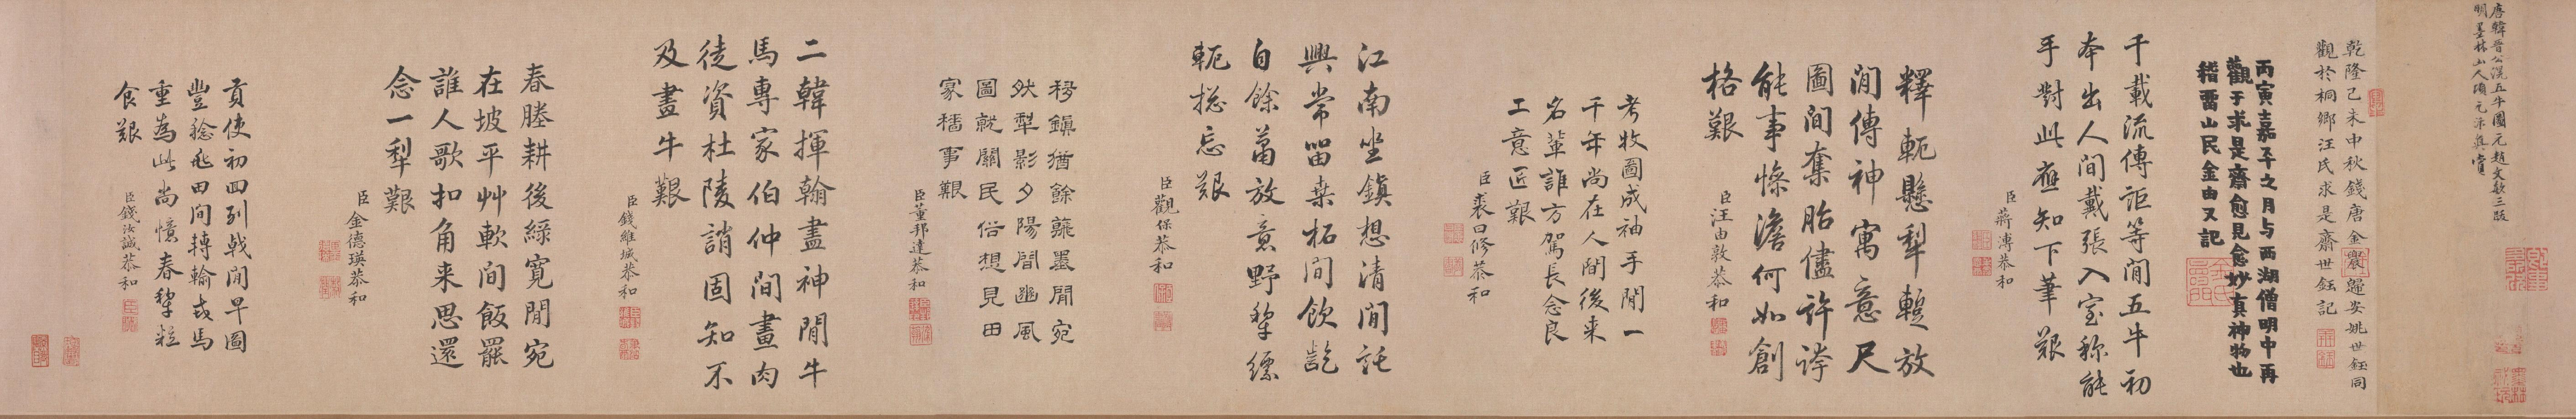 唐韓晉公滉五牛圖元趙文敏三跋
明墨林山人項元汴真賞
乾隆己未中秋錢唐金農歸安姚世鈺同
觀於桐鄉汪氏求是齋世鈺記
丙寅嘉平之月与西湖僧明中再
觀于求是齋愈見愈妙真神物也
稽留山民金由又記
千載流傳詎等閒五牛初
本出人間戴張入室称能
手對此應知下筆艱
臣蔣溥恭和
釋軛懸犁蹔放
閒傳神寓意尺
圖間奪胎儘許誇
能事慘澹何如創
格艱
臣汪由敦恭和
考牧圖成袖手閒一
千年尚在人間後来
名輩誰方駕長念良
工意匠艱
臣裘曰修恭和
江南坐鎮想清閒託
興常留桒柘間飲齕
自餘蕭放意野犂縹
軛揔忘艱
臣觀保恭和
移鎮猶餘蓺墨閒宛
然犁影夕陽間豳風
圖就關民俗想見田
家穡事艱
臣董邦達恭和
二韓揮翰盡神閒牛
馬專家伯仲間畫肉
徒資杜陵誚固知不
及畫牛艱
臣錢維城恭和
春塍耕後綠寬閒宛
在坡平艸軟間飯罷
誰人歌扣角来思還
念一犁艱
臣金德瑛恭和
貢使初回列戟閒早圖
豐稔飛田間轉輸戎馬
重為此尚憶春犂粒
食艱
臣錢汝誠恭和